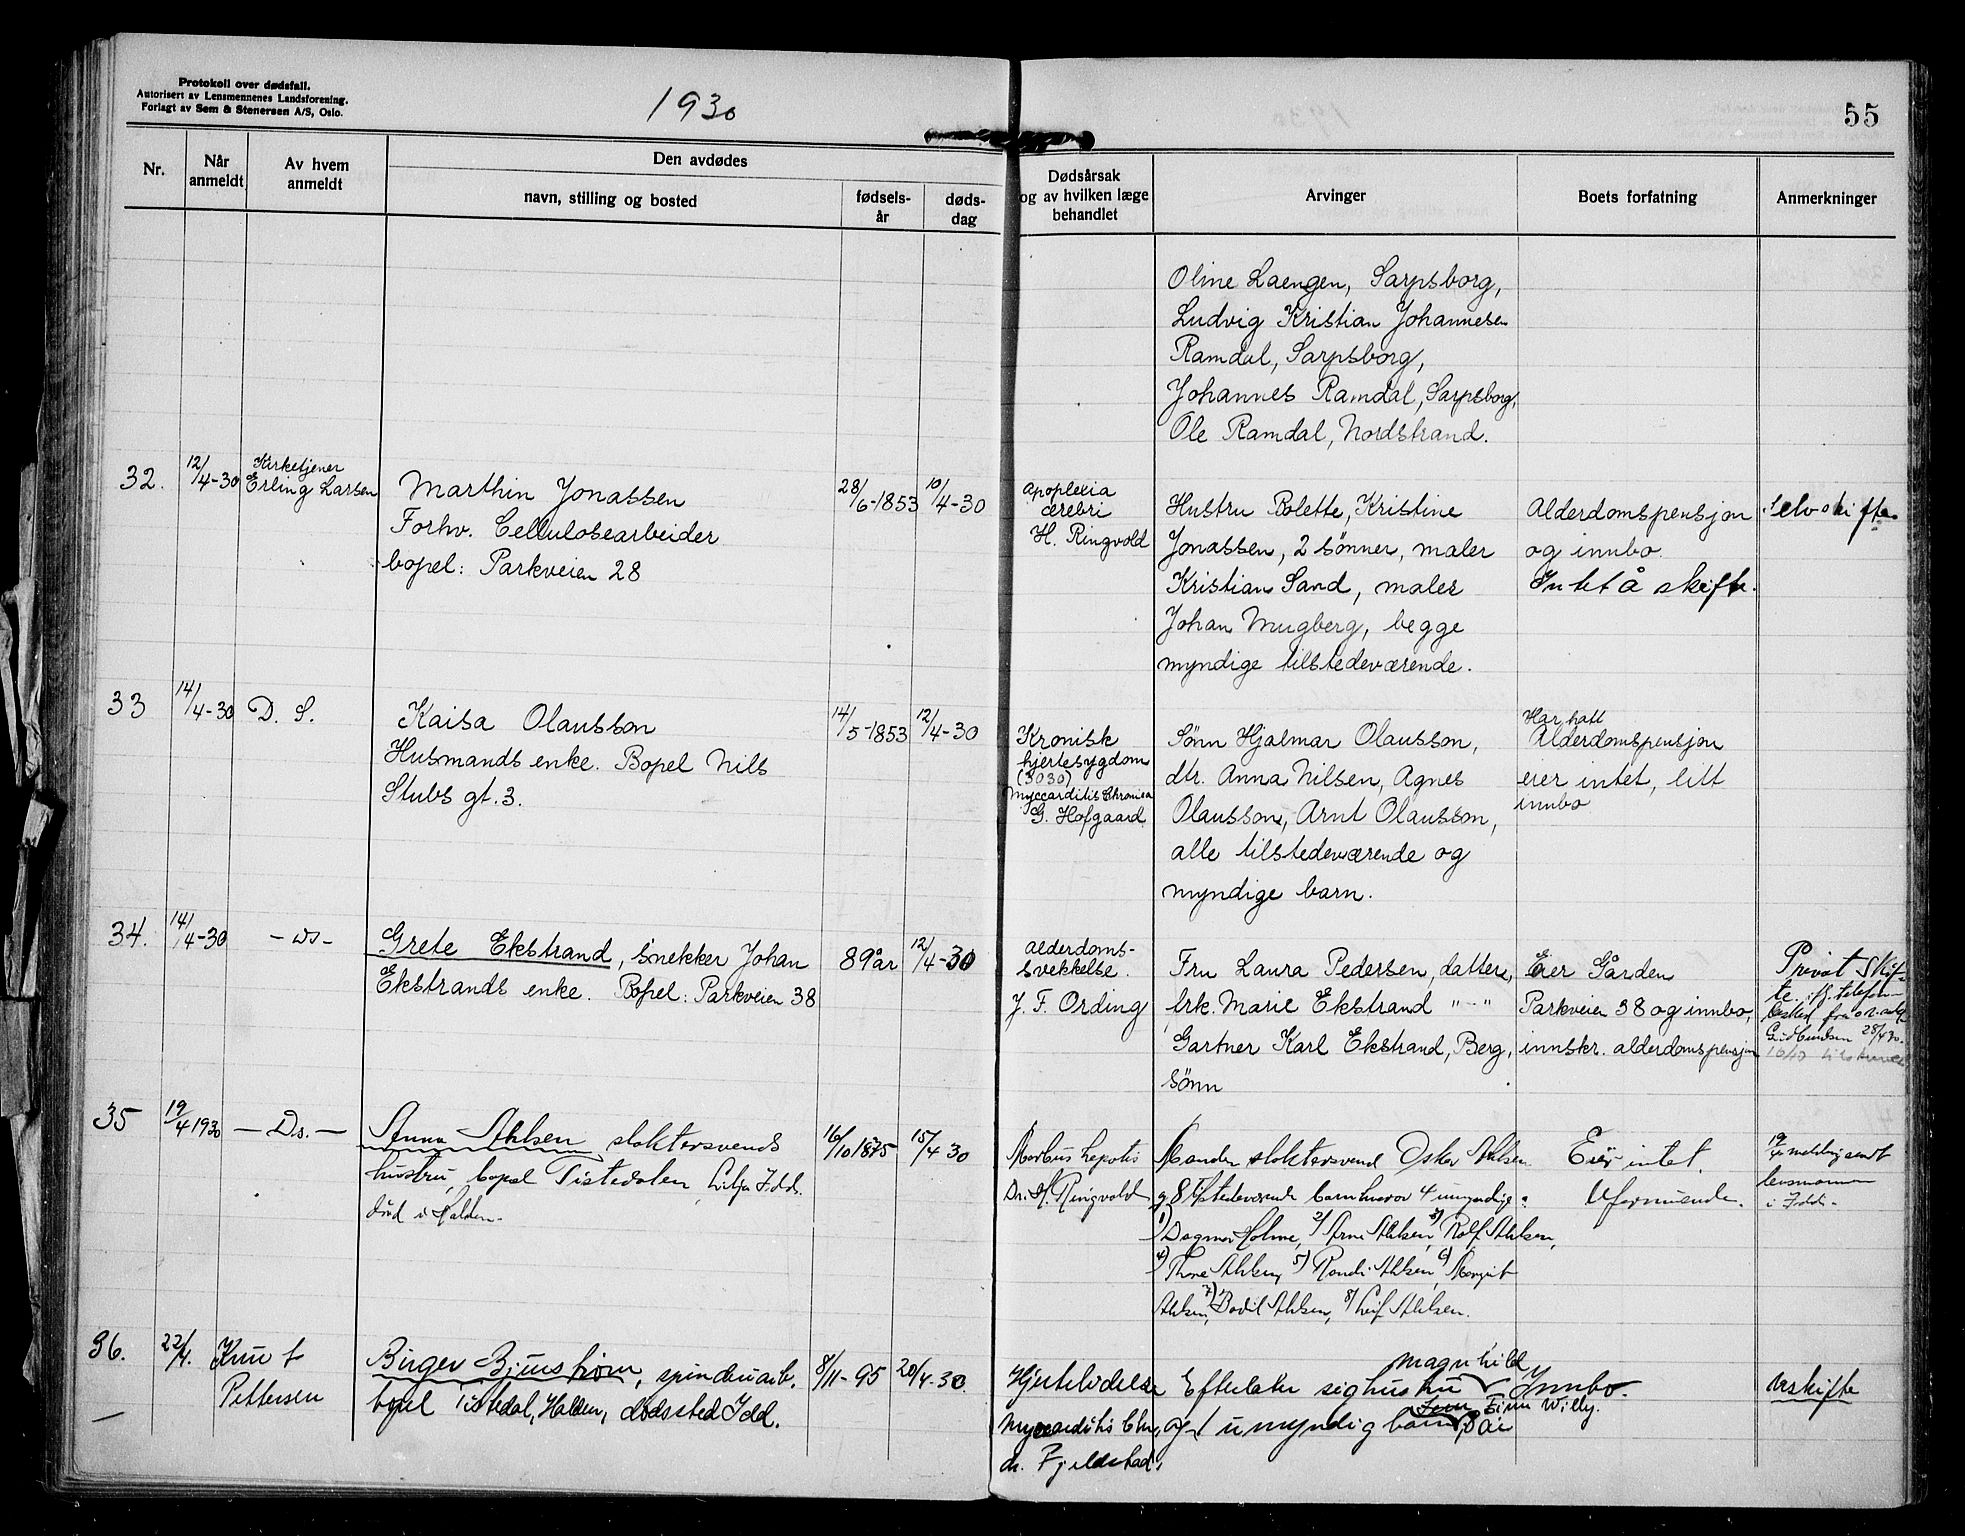 Protokoll over dødsfall.
Autorisert av Lensmennenes Landsforening.
Forlagt av Sem & Stenersen A/S, Oslo.
1930
55
Nr.
Når anmeldt
Av hvem anmeldt
Den avdødes
navn, stilling og bosted
fødsels-år
døds-dag
Dødsårsak og av hvilken læge behandlet
Arvinger
Boets forfatning
Anmerkninger
Oline Laengen, Sarpsborg,
Ludvig Kristian Johannesen
Ramdal, Sarpsborg,
Johannes Ramdal, Sarpsborg,
Ole Ramdal, Nordstrand.
32.
12/4-30
Kirketjener
Erling Larsen
Marthin Jonassen
Forhv. Cellulosearbeider
bopel: Parkveien 28
28/6-1853
10/4-30
Apoplexia
cerebri
H. Ringvold
Hustru Bolette, Kristine
Jonassen, 2 sønner, maler
Kristian Sand, maler
Johan Mugberg, begge
myndige tilstedeværende.
Alderdomspensjon
og innbo.
Intet å skifte.
Selvskifte
33
14/4-30
D. S.
Kaisa Olausson
Husmands enke. Bopel Nils
Stubs gt. 3.
14/5-1853
12/4-30
Kronisk
hjertesygdom
(3030)
Myccarditis Chronica
G. Hofgaard
Sønn Hjalmar Olausson,
dtr. Anna Nilsen, Agnes
Olausson, Arnt Olausson,
alle tilstedeværende og
myndige barn.
Har hatt
Alderdomspensjon
eier intet, litt
innbo
34.
14/4-30
- ds -
Grete Ekstrand, snekker Johan
Ekstrands enke. Bopel: Parkveien 38
89 år
12/4-30
Alderdoms-
svekkelse.
J. F. Ording
Fru Laura Pedersen, datter,
frk. Marie Ekstrand "-"
Gartner Karl Ekstrand, Berg,
sønn
Eier Gården
Parkveien 38 og innbo,
innskr. alderdomspensjon
Privat Skif-
te. telefon-
besked fra
28/4 30.
35
19/4 1930
- D.s. -
Anna Ahlsen slaktersvends
hustru, bopel Tistedalen, Idd.
død i Halden.
16/10 1875
15/4 30
Morbus hepatis
Dr. H. Ringvold
Manden slaktersvend Oskar Ahlsen
og 8 tilstedeværende barn hvorav 4 umyndige.
1) Dagmar Holme, 2) Arne Ahlsen, 3) Rolf Ahlsen,
4) Thore Ahlsen, 5) Randi Ahlsen, 6) Margit
Ahlsen, 7) Bodil Ahlsen, 8) Leif Ahlsen.
Eier intet.
Uformuende.
19/4 melding sendt
lensmannen
i Idd.
36.
22/4.
Knut
Pettersen
Birger Bjurstrøm, spinderiarb.
bopel Tistedal, Halden, dødssted Idd.
8/11-95
20/4-30
Hjertelidelse
Myocarditis Chr.
dr. Fjeldstad,
Magnhild
Efterlater sig hustru
Finn Willy.
og 1 umyndig barn, 8 år
Innbo.
Arskifte